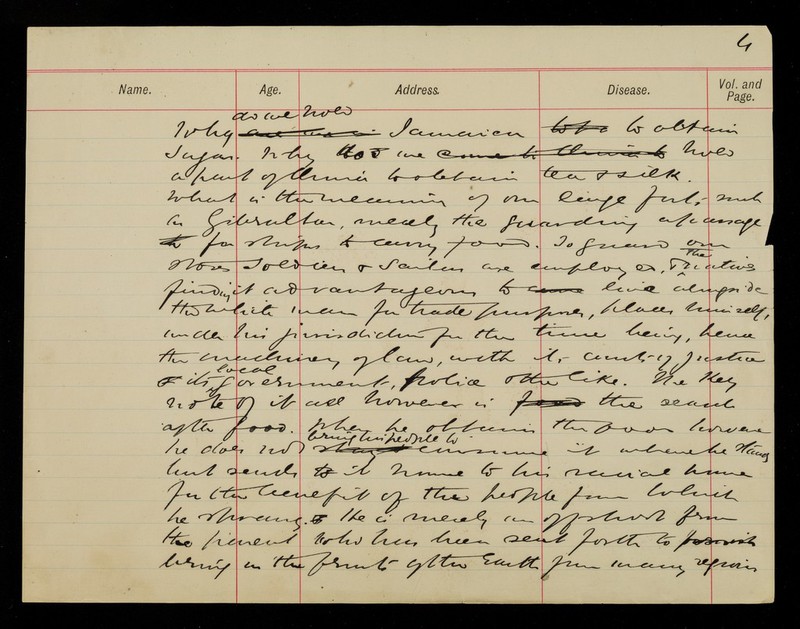 4
Name. Age. Address. Disease. Vol. and Page.
do we hold
Why Jamaica to obtain
Sugar. Why do we hold
a part of China to obtain tea & silk.
What is the meaning of our large forts such
as Gibraltar, merely the guarding a passage
for ships to carry food. To guard our
the
stores Soldiers & Sailors are employed, natives
finding it advantageous to live alongside
the white man for trade purposes, places himself,
under his jurisdiction for the time being, hence
the machinery of law, with its courts of justice
local
& its government, police & the like. The Key
note of it all however is the search
after food. When he obtains the food however
bring his people to
he does not consume it where he stands
but sends it home to his racial home
for the benefit of the people from which
he sprang. He is merely an offshoot from
the parent who has been sent forth to
bring in the fruits of the Earth from many regions